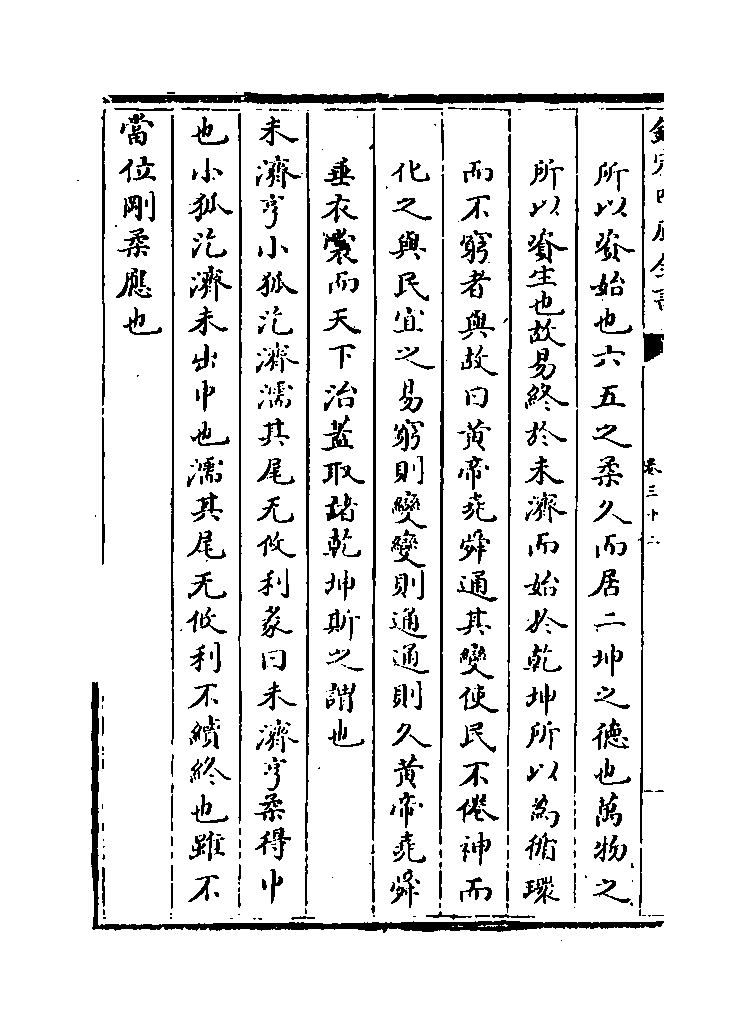 欽定四庫全書
卷三十二
所以資始也六五之柔久而居二坤之德也萬物之
所以資生也故易終於未濟而始於乾坤所以為循環
而不窮者與故曰黄帝堯舜通其變使民不倦神而
化之與民宜之易窮則變變則通通則久黄帝堯舜
垂衣裳而天下治蓋取諸乾坤斯之謂也
未濟亨小狐汔濟濡其尾无攸利彖曰未濟亨柔得中
也小狐汔濟未出中也濡其尾无攸利不續終也雖不
當位剛柔應也